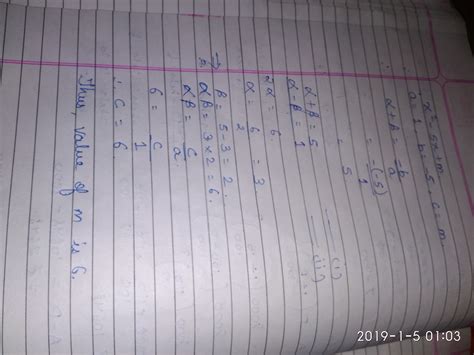 x² - 5x + m
a = 1, b = -5, c = m
α + β = -b/a
= -(-5)/1
= 5
α + β = 5 (i)
α - β = 1 (ii)
2α = 6
α = 6/2 = 3
β = 5 - 3 = 2.
→ αβ = 3 × 2 = 6.
αβ = c/a
6 = c/1
∴ c = 6
Thus, value of m is 6.
2019-1-5 01:03